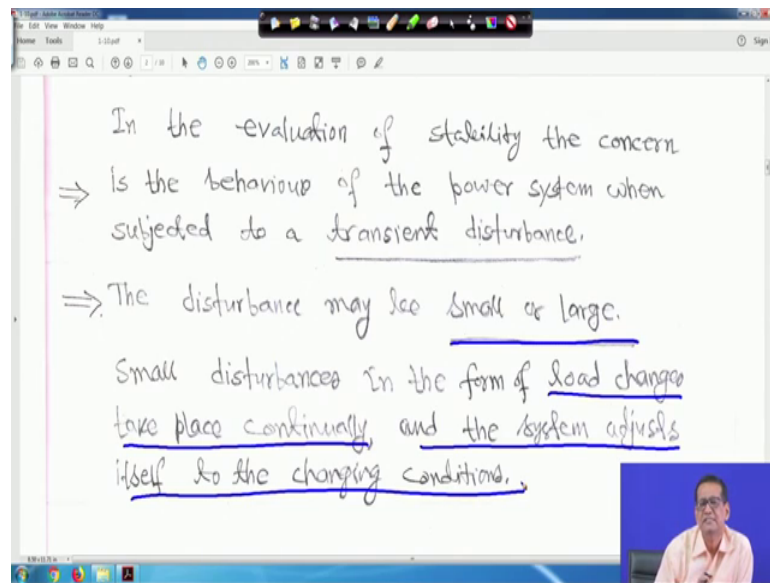 1-10.pdf - Adobe Acrobat Reader DC
File Edit View Window Help
Home Tools 1-10.pdf × Sign
2 / 38 200%
In the evaluation of stability the concern
⇒ is the behaviour of the power system when
subjected to a transient disturbance.
⇒ The disturbance may be small or large.
Small disturbances in the form of load changes
take place continually, and the system adjusts
itself to the changing conditions.